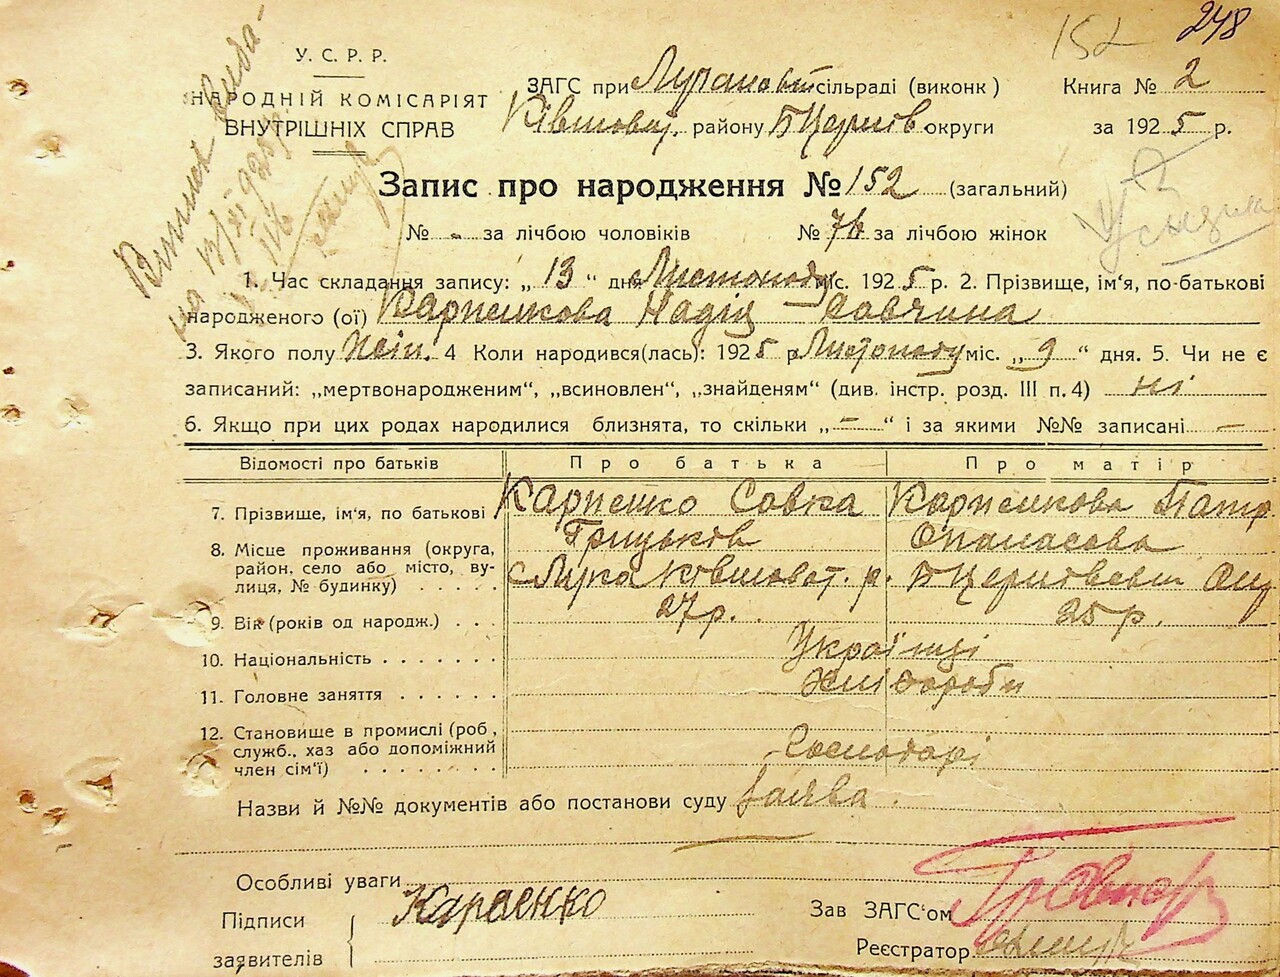 152 248
У. С. Р. Р.
НАРОДНІЙ КОМІСАРІЯТ
ВНУТРІШНІХ СПРАВ
ЗАГС при сільраді (виконк) Книга № 2
району БЦерков округи за 1925 р.
Запис про народження № 152 (загальний)
№ - за лічбою чоловіків № 76 за лічбою жінок
1. Час складання запису: „ 13 “ дня Листопаду міс. 1925 р. 2. Прізвище, ім'я, по-батькові
народженого (ої) Карпенкова Надія Савчина
3. Якого полу Жін. 4 Коли народився(лась): 1925 р Листопаду міс. „ 9 “ дня. 5. Чи не є
записаний: „мертвонародженим“, „всиновлен“, „знайденям“ (див. інстр. розд. III п. 4) ні
6. Якщо при цих родах народилися близнята, то скільки „ — “ і за якими №№ записані —
Відомості про батьків Про батька Про матір
7. Прізвище, ім'я, по батькові Карпенко Савка Грицьків Карпенкова Опанасова
8. Місце проживання (округа, район, село або місто, вулиця, № будинку) с Лука Ківшоват. р.
9. Вік (років од народж.) 27 р. 25 р.
10. Національність Українці
11. Головне заняття Хлібороби
12. Становище в промислі (роб, служб., хаз або допоміжний член сім'ї) Господарі
Назви й №№ документів або постанови суду Заява
Особливі уваги
Підписи
заявителів
Карпенко
Зав ЗАГС'ом
Реєстратор